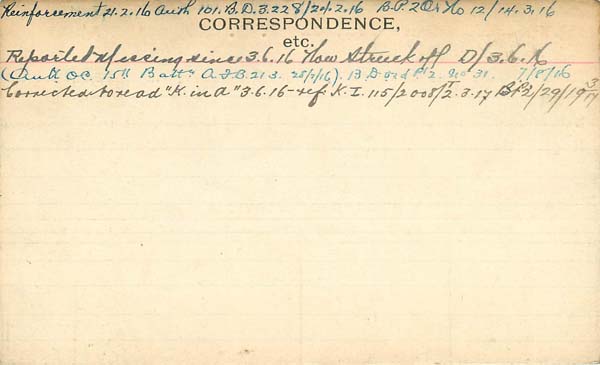 Reinforcement 21.2.16 Auth 101. B.D. 3.228/24.2.16 B.P. 2 Or No 12/14.3.16
CORRESPONDENCE,
etc.
Reported Missing since 3.6.16 Now Struck off D/3.6.16
(Auth O.C. 15th Battn A.F.B 213. 28/7/16). B.D. Ord Pt 2. No 31. 7/8/16
Corrected to read "K. in A" 3.6.16 - ref. K.I. 115/2008/2.3.17 Pt 2/29/19